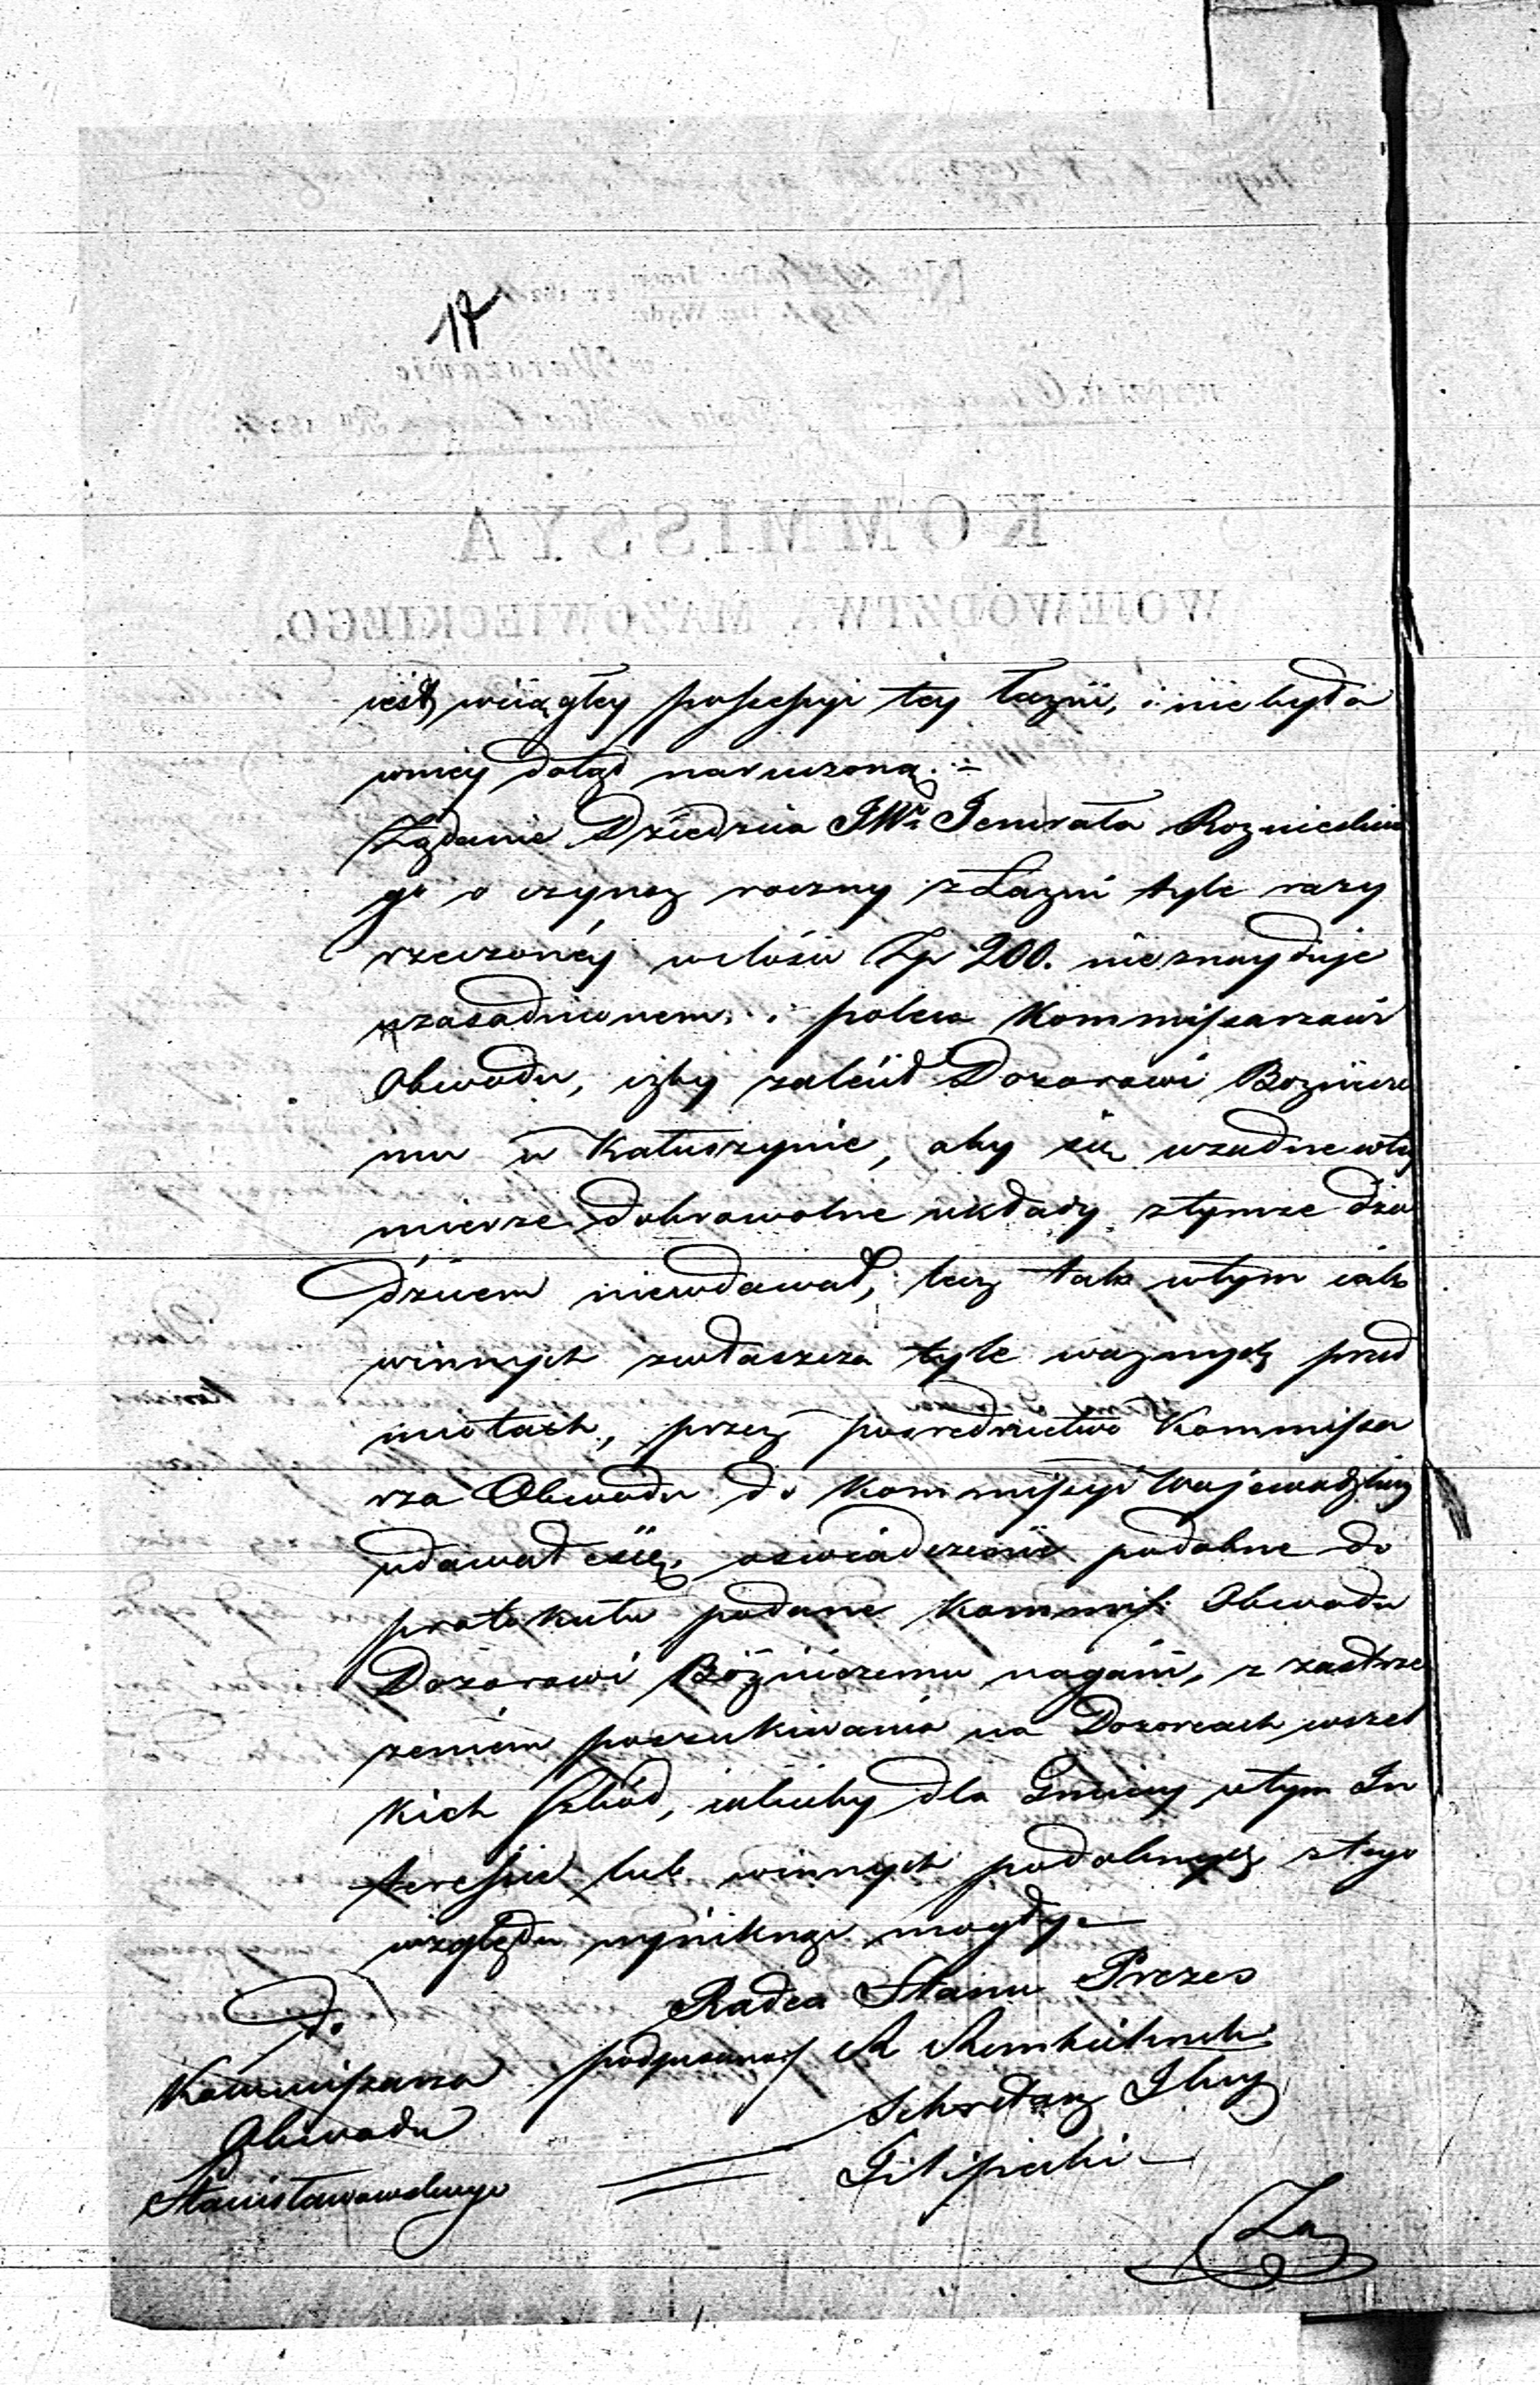 17
iest wciągłey possessyi tey łazni, i nie była
wniey dotąd naruszoną. =
Żądanie Dziedzica JWo Jenerała Roznieckie
go o czynsz roczny z Łazni tyle razy
rzeczoney wilości Zp 200. nieznayduje
uzasadnionem, i poleca Kommissarzowi
Obwodu, iżby zalecił Dozorowi Boznicze
mu w Kałuszynie, aby się wżadne wtey
mierze dobrowolne układy ztymże Dzie
dzicem niewdawał, lecz tak wtym iak
winnych zwłaszcza tyle ważnych przed
miotach, przez posrednictwo Kommissa
rza Obwodu do Kommissyi Wojewodzkiey
udawał się, oswiadczenie podobne do
protokułu podane Kommiss: Obwodu
Dozorowi Bożniczemu nagani, z zastrze
żeniem poszukiwania na Dozorcach wszel
kich szkód, iakieby dla Gminy wtym In
teressie lub winnych podobnych ztego
względu wyniknąć mogły.
Radca Stanu Prezes
podpisano R Rembieliński
Sekretarz Jlny
Filipecki
Do
Kommissarza
Obwodu
Stanisławowskiego
Za
KOMMISSYA
WOJEWÓDZTWA MAZOWIECKIEGO.
w Warszawie